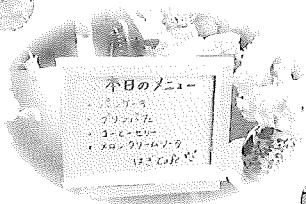 本日のメニュー
・プリンパフェ
・コーヒーゼリー
・メロンクリームソーダ
cafe